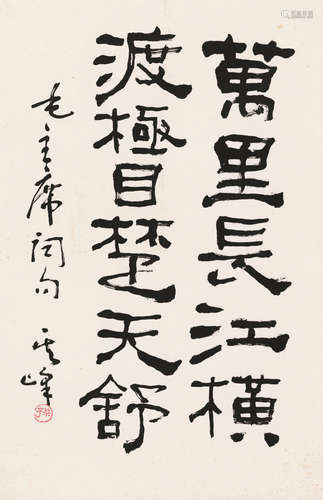 萬里長江橫
渡極目楚天舒
毛主席詞句 其峰